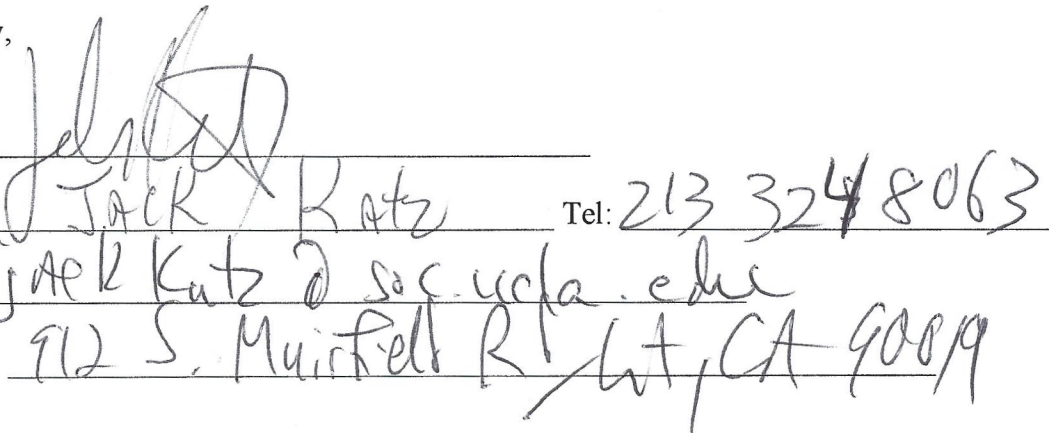 Jack Katz Tel: 213 324 8063
jackkatz@soc.ucla.edu
912 S. Muirfield Rd / LA, CA 90019